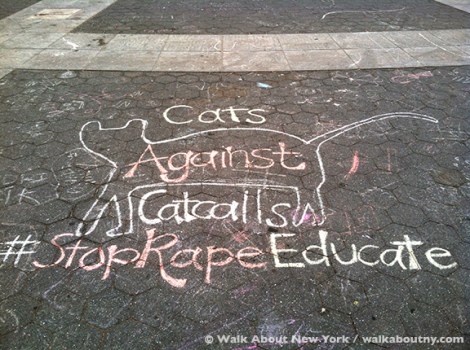 Cats
Against
Catcalls
#StopRapeEducate
© Walk About New York / walkaboutny.com